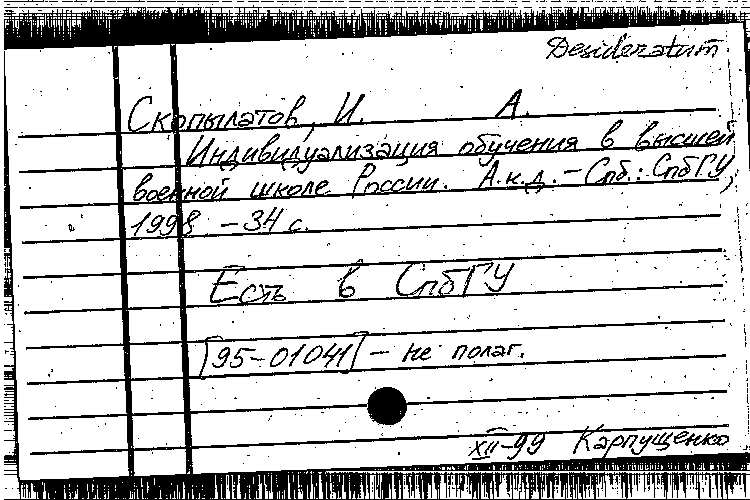 Desideratum
Скопылатов, И. А.
Индивидуализация обучения в высшей
военной школе России. А.к.д. - Спб.: СпбГУ,
1998 - 34 с.
Есть в СпбГУ
[95-01041] - не полаг.
XII-99 Карпущенко